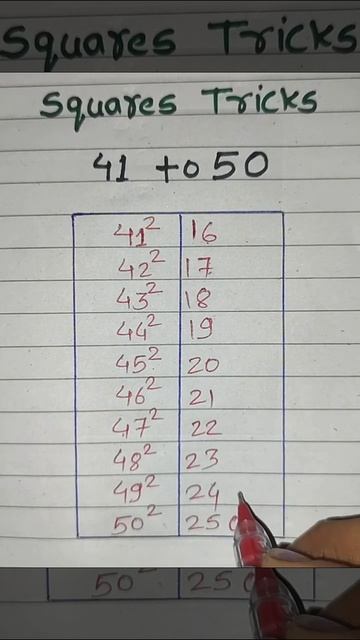 Squares Tricks
Squares Tricks
41 to 50
41² 16
42² 17
43² 18
44² 19
45² 20
46² 21
47² 22
48² 23
49² 24
50² 250
50² 250